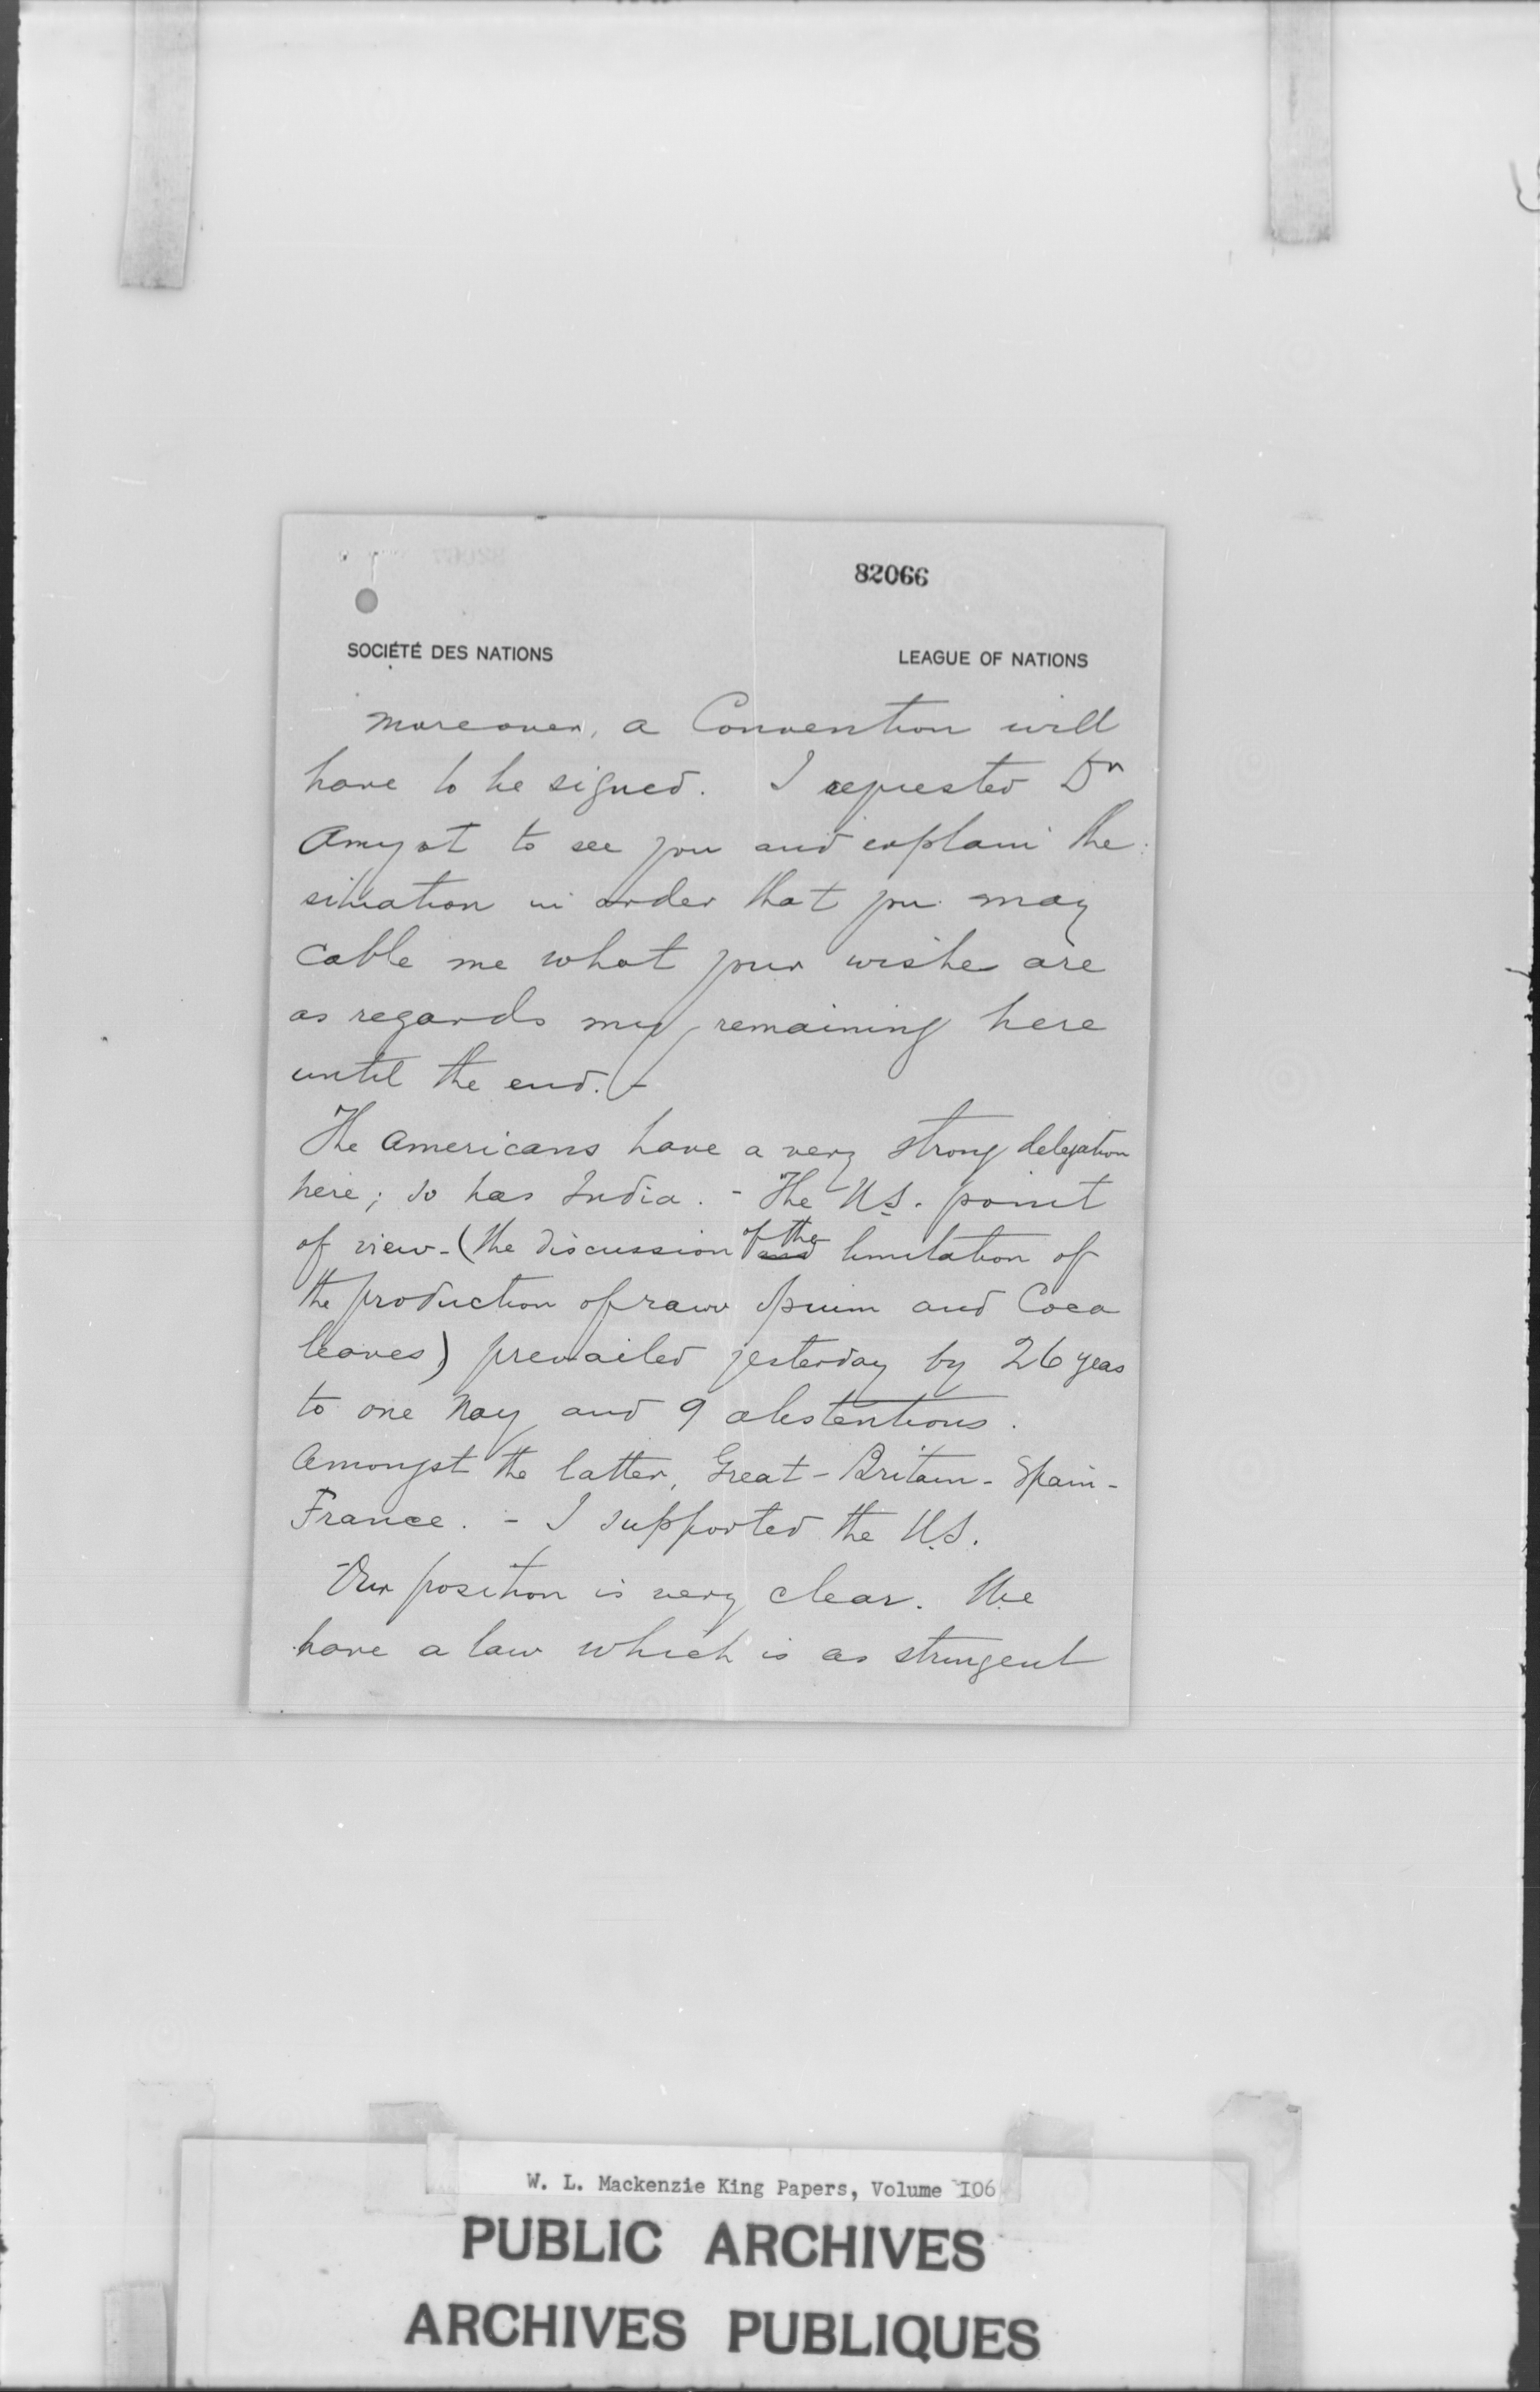 82066
SOCIÉTÉ DES NATIONS LEAGUE OF NATIONS
Moreover, a Convention will
have to be signed. I requested Dr
Amyot to see you and explain the
situation in order that you may
cable me what your wishes are
as regards my remaining here
until the end. -
The Americans have a very strong delegation
here; so has India. - The U.S. point
of view - (the discussion of the and limitation of
the production of raw opium and Coca
leaves) prevailed yesterday by 26 yeas
to one Nay and 9 abstentions.
Amongst the latter, Great-Britain - Spain -
France. - I supported the U.S.
Our position is very clear. We
have a law which is as stringent
W. L. Mackenzie King Papers, Volume 106
PUBLIC ARCHIVES
ARCHIVES PUBLIQUES